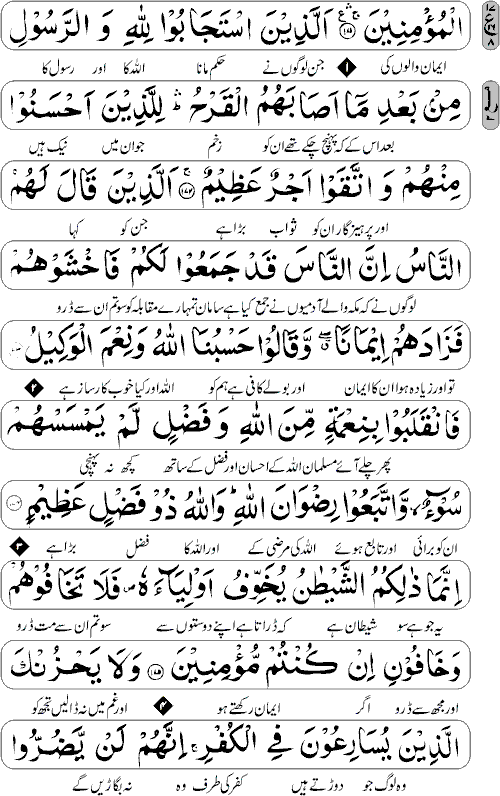 الْمُؤْمِنِيْنَ ۝۱۷۱ اَلَّذِيْنَ اسْتَجَابُوْا لِلّٰهِ وَ الرَّسُوْلِ
ایمان والوں کی ۱ جن لوگوں نے حکم مانا اللہ کا اور رسول کا
مِنْ بَعْدِ مَاۤ اَصَابَهُمُ الْقَرْحُ ؕ لِلَّذِيْنَ اَحْسَنُوْا
بعد اس کے کہ پہنچ چکے تھے ان کو زخم جو ان میں نیک ہیں
مِنْهُمْ وَ اتَّقَوْا اَجْرٌ عَظِيْمٌ ۝۱۷۲ اَلَّذِيْنَ قَالَ لَهُمُ
اور پرہیزگار ان کو ثواب بڑا ہے جن کو کہا
النَّاسُ اِنَّ النَّاسَ قَدْ جَمَعُوْا لَكُمْ فَاخْشَوْهُمْ
لوگوں نے کہ مکہ والے آدمیوں نے جمع کیا ہے سامان تمہارے مقابلہ کو سو تم ان سے ڈرو
فَزَادَهُمْ اِيْمَانًا ۖۗ وَّقَالُوْا حَسْبُنَا اللّٰهُ وَنِعْمَ الْوَكِيْلُ
تو اور زیادہ ہوا ان کا ایمان اور بولے کافی ہے ہم کو اللہ اور کیا خوب کارساز ہے ۲
فَانْقَلَبُوْا بِنِعْمَةٍ مِّنَ اللّٰهِ وَفَضْلٍ لَّمْ يَمْسَسْهُمْ
پھر چلے آئے مسلمان اللہ کے احسان اور فضل کے ساتھ کچھ نہ پہنچی
سُوْٓءٌ ۙ وَّاتَّبَعُوْا رِضْوَانَ اللّٰهِ ؕ وَاللّٰهُ ذُوْ فَضْلٍ عَظِيْمٍ
ان کو برائی اور تابع ہوئے اللہ کی مرضی کے اور اللہ کا فضل بڑا ہے ۳
اِنَّمَا ذٰلِكُمُ الشَّيْطٰنُ يُخَوِّفُ اَوْلِيَآءَهٗ ۪ فَلَا تَخَافُوْهُمْ
یہ جو ہے سو شیطان ہے کہ ڈراتا ہے اپنے دوستوں سے سو تم ان سے مت ڈرو
وَخَافُوْنِ اِنْ كُنْتُمْ مُّؤْمِنِيْنَ ۝۱۷۵ وَلَا يَحْزُنْكَ
اور مجھ سے ڈرو اگر ایمان رکھتے ہو ۴ اور غم میں نہ ڈالیں تجھ کو
الَّذِيْنَ يُسَارِعُوْنَ فِي الْكُفْرِ ۚ اِنَّهُمْ لَنْ يَّضُرُّوا
وہ لوگ جو دوڑتے ہیں کفر کی طرف وہ نہ بگاڑیں گے